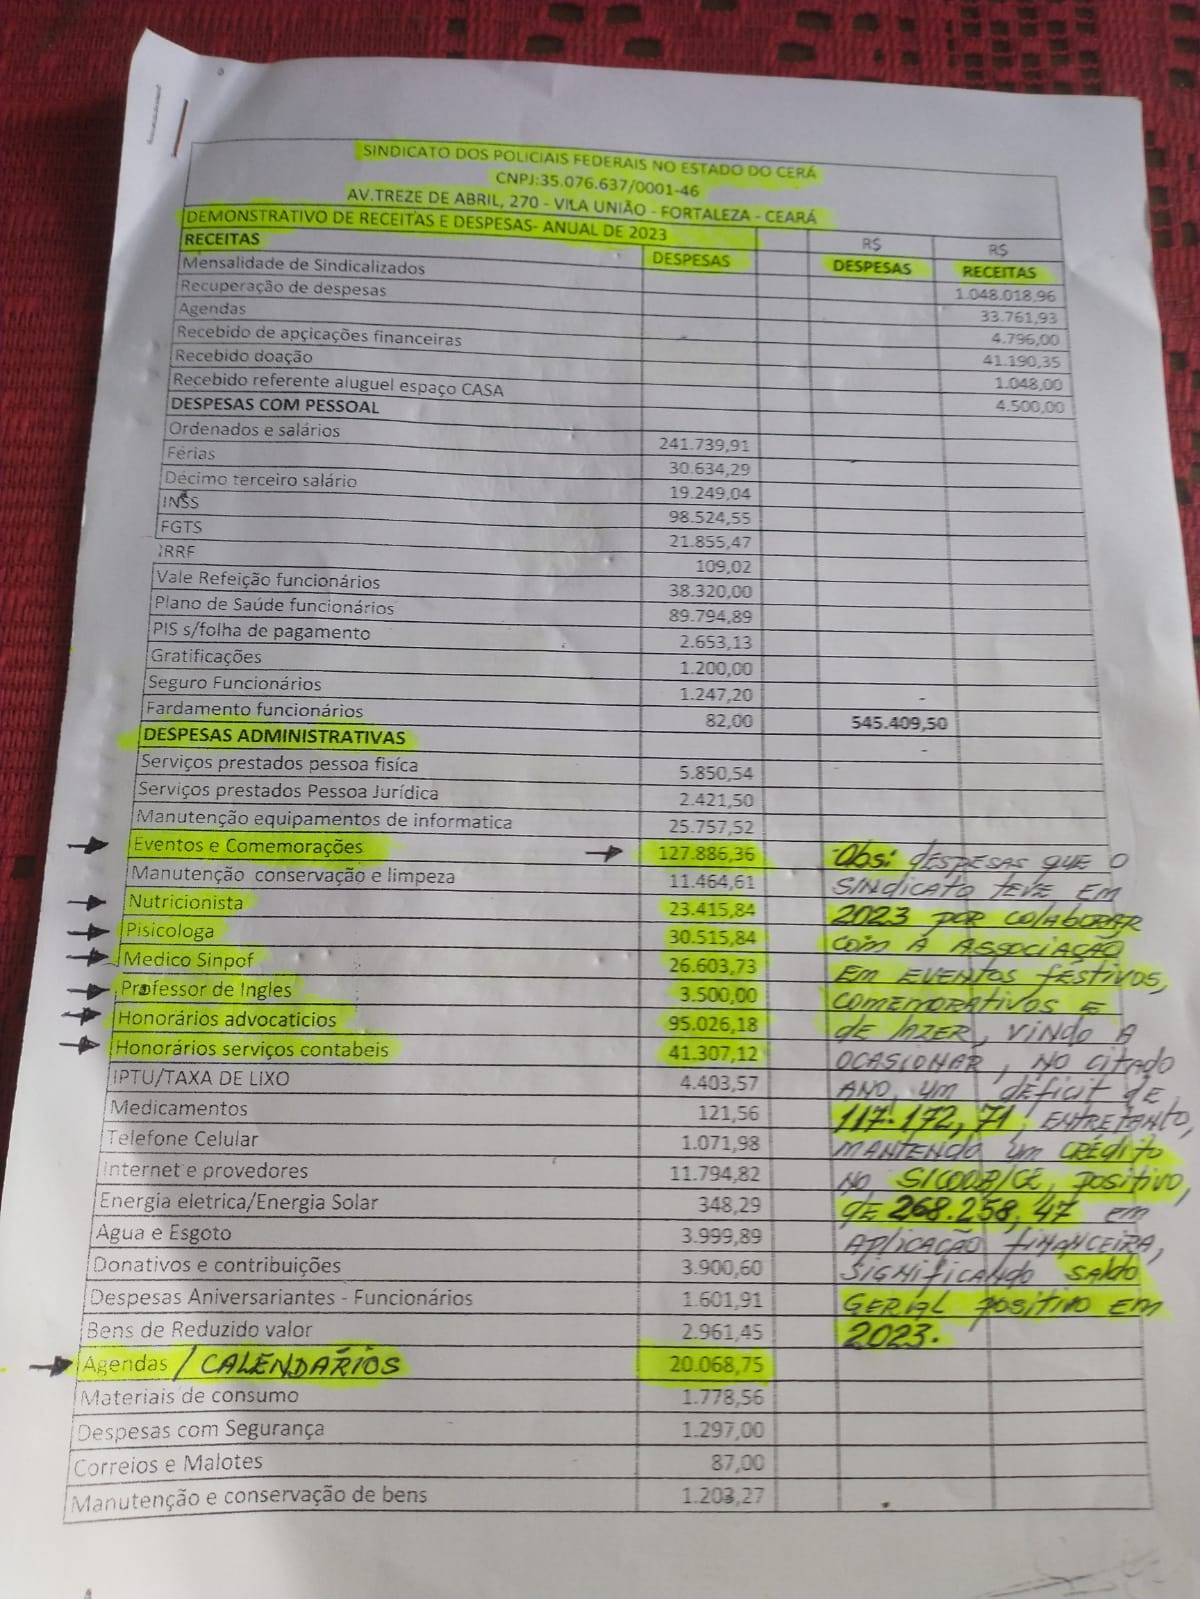 SINDICATO DOS POLICIAIS FEDERAIS NO ESTADO DO CERÁ
CNPJ:35.076.637/0001-46
AV.TREZE DE ABRIL, 270 - VILA UNIÃO - FORTALEZA - CEARÁ
DEMONSTRATIVO DE RECEITAS E DESPESAS- ANUAL DE 2023 R$ R$
RECEITAS DESPESAS DESPESAS RECEITAS
Mensalidade de Sindicalizados 1.048.018,96
Recuperação de despesas 33.761,93
Agendas 4.796,00
Recebido de apçicações financeiras 41.190,35
Recebido doação 1.048,00
Recebido referente aluguel espaço CASA 4.500,00
DESPESAS COM PESSOAL
Ordenados e salários 241.739,91
Férias 30.634,29
Décimo terceiro salário 19.249,04
INSS 98.524,55
FGTS 21.855,47
IRRF 109,02
Vale Refeição funcionários 38.320,00
Plano de Saúde funcionários 89.794,89
PIS s/folha de pagamento 2.653,13
Gratificações 1.200,00
Seguro Funcionários 1.247,20 -
Fardamento funcionários 82,00 545.409,50
DESPESAS ADMINISTRATIVAS -
Serviços prestados pessoa fisíca 5.850,54
Serviços prestados Pessoa Jurídica 2.421,50
Manutenção equipamentos de informatica 25.757,52
Eventos e Comemorações 127.886,36
Manutenção conservação e limpeza 11.464,61
Nutricionista 23.415,84
Pisicologa 30.515,84
Medico Sinpof 26.603,73
Professor de Ingles 3.500,00
Honorários advocaticios 95.026,18
Honorários serviços contabeis 41.307,12
IPTU/TAXA DE LIXO 4.403,57
Medicamentos 121,56
Telefone Celular 1.071,98
Internet e provedores 11.794,82
Energia eletrica/Energia Solar 348,29
Agua e Esgoto 3.999,89
Donativos e contribuições 3.900,60
Despesas Aniversariantes - Funcionários 1.601,91
Bens de Reduzido valor 2.961,45
Agendas / CALENDÁRIOS 20.068,75
Materiais de consumo 1.778,56
Despesas com Segurança 1.297,00
Correios e Malotes 87,00
Manutenção e conservação de bens 1.203,27
Obs: DESPESAS QUE O
SINDICATO TEVE EM
2023 POR COLABORAR
COM A ASSOCIAÇÃO
EM EVENTOS FESTIVOS,
COMEMORATIVOS E
DE LAZER, VINDO A
OCASIONAR, NO CITADO
ANO, UM DÉFICIT DE
117.172,71, ENTRETANTO,
MANTENDO UM CRÉDITO
NO SICOOB/CE, POSITIVO,
DE 268.258,47 EM
APLICAÇÃO FINANCEIRA,
SIGNIFICANDO SALDO
GERAL POSITIVO EM
2023.